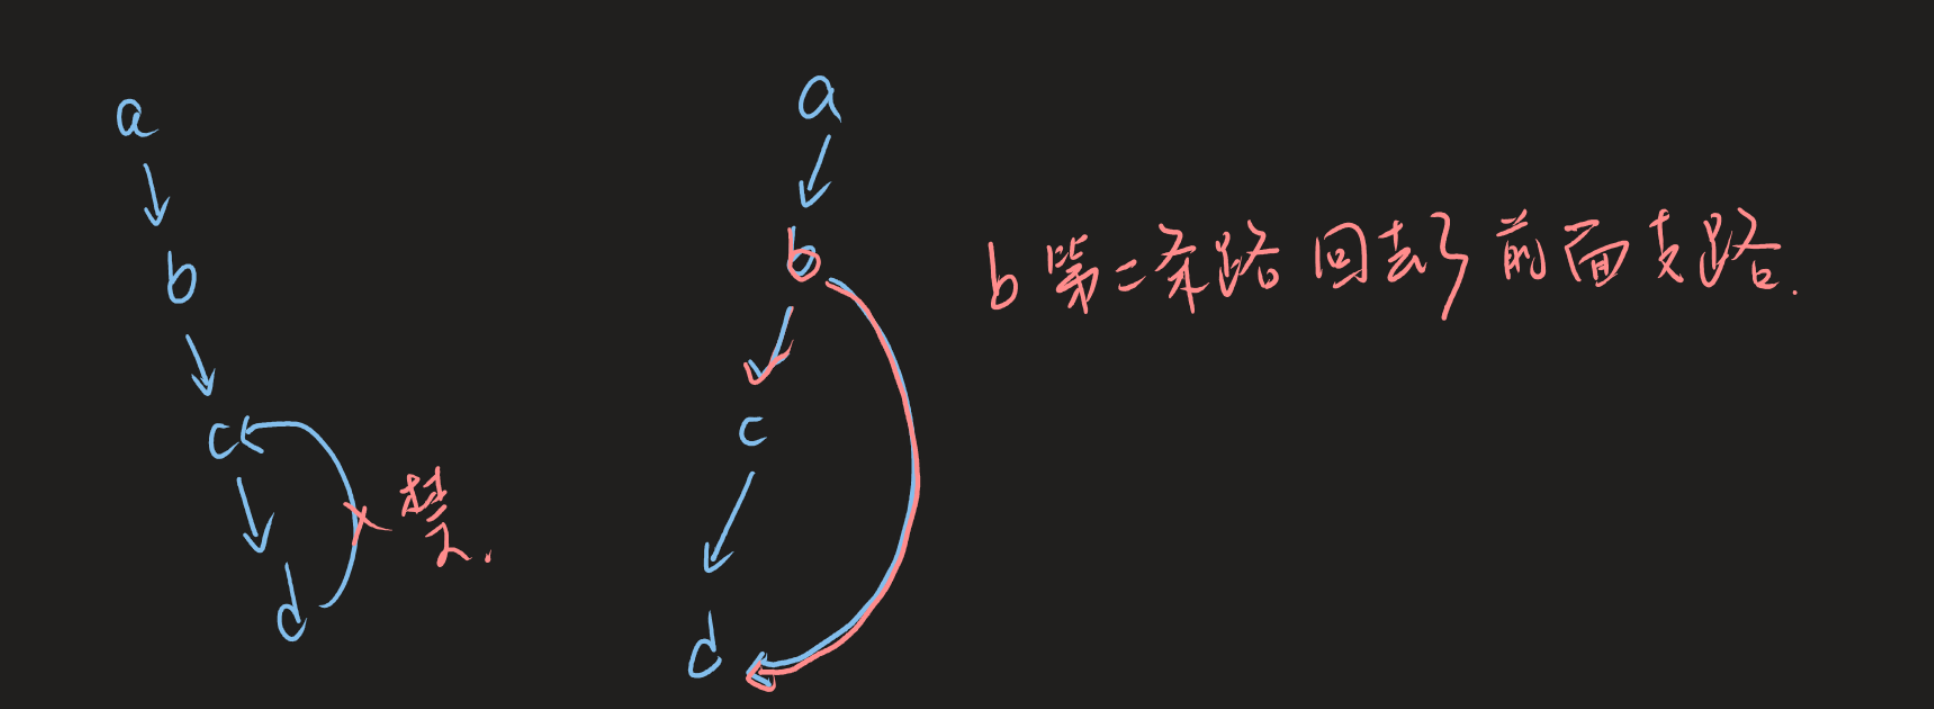 a
b
c
d
禁.
a
b
c
d
b第二条路回去了前面支路.